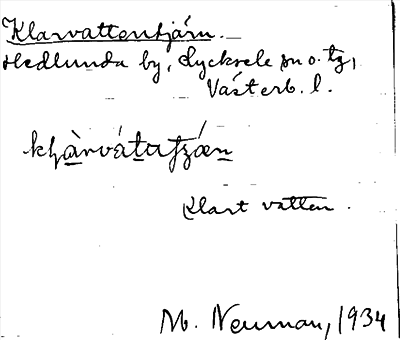 Klarvattentjärn.
Hedlunda by, Lycksele sn o. tg,
Västerb. l.
Klart vatten.
M. Neuman, 1934